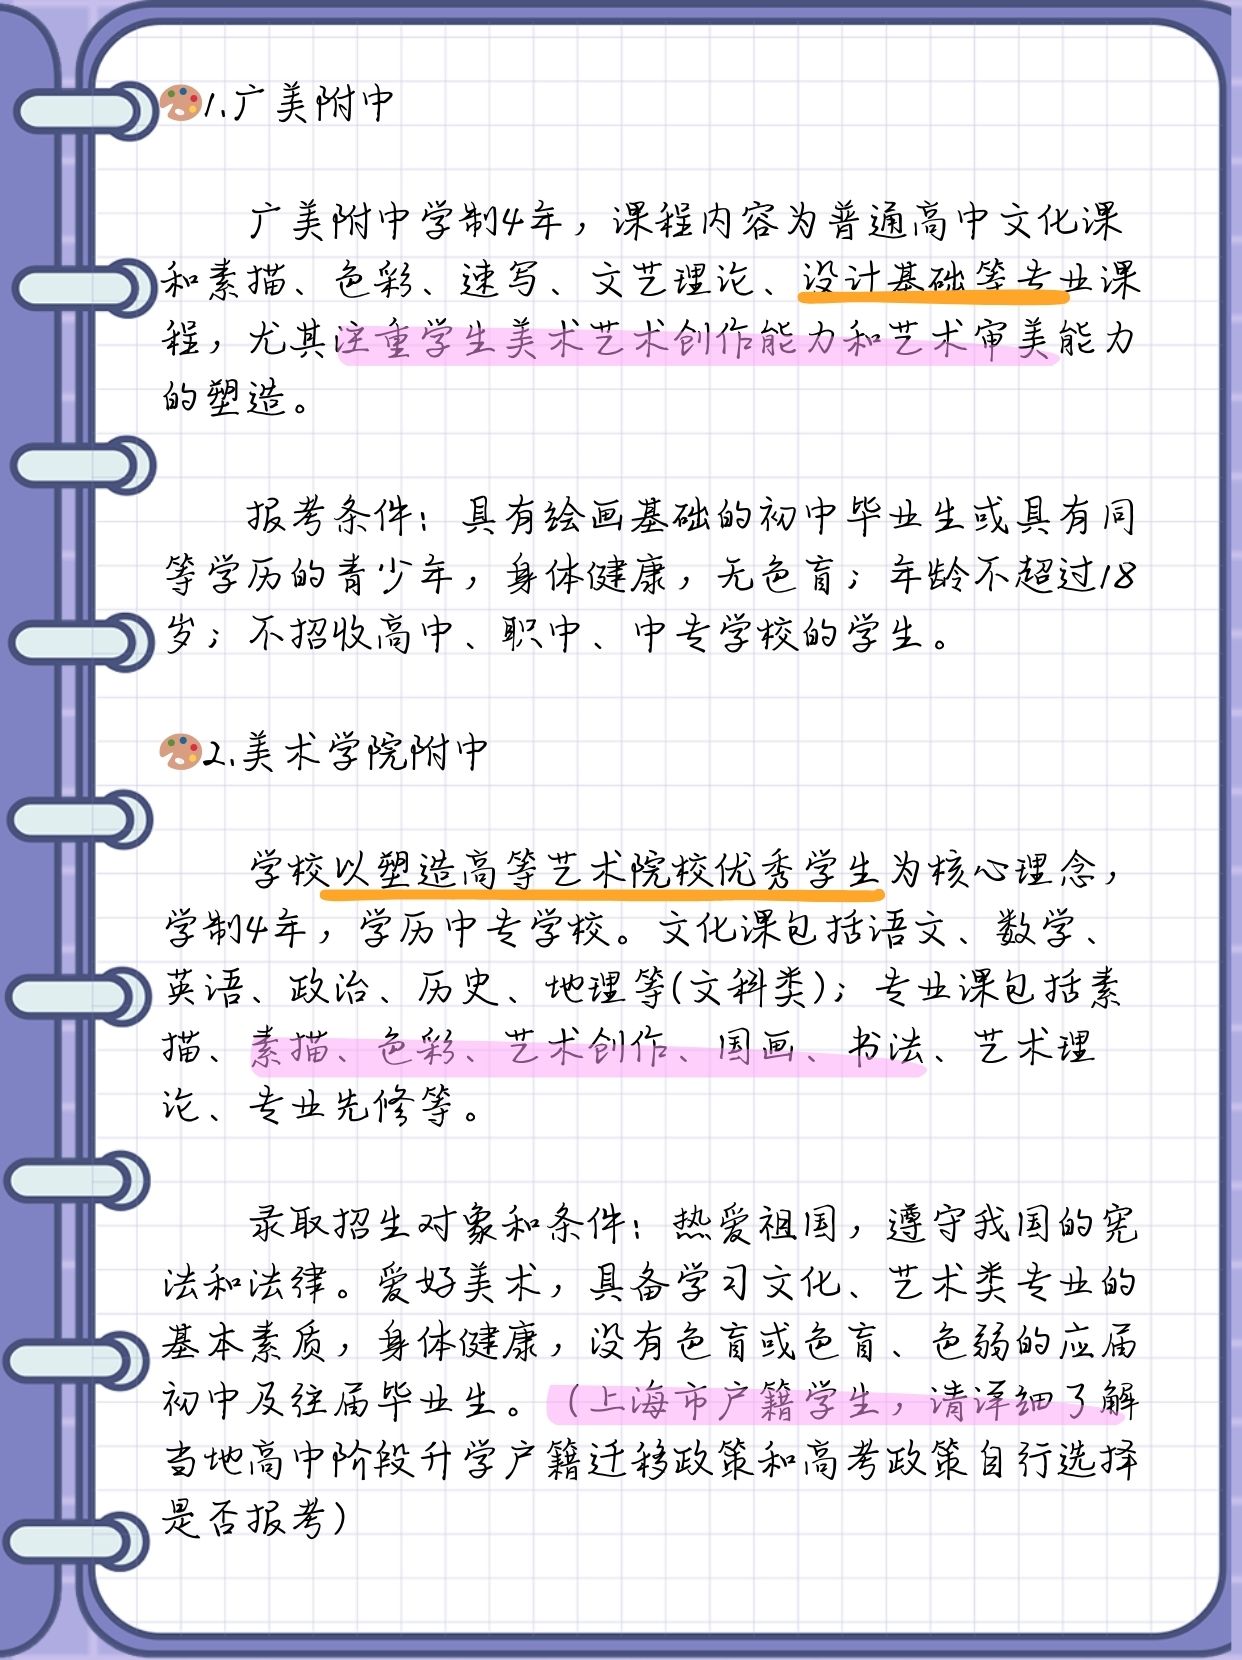 1.广美附中
广美附中学制4年，课程内容为普通高中文化课
和素描、色彩、速写、文艺理论、设计基础等专业课
程，尤其注重学生美术艺术创作能力和艺术审美能力
的塑造。
报考条件：具有绘画基础的初中毕业生或具有同
等学历的青少年，身体健康，无色盲；年龄不超过18
岁；不招收高中、职中、中专学校的学生。
2.美术学院附中
学校以塑造高等艺术院校优秀学生为核心理念，
学制4年，学历中专学校。文化课包括语文、数学、
英语、政治、历史、地理等(文科类)；专业课包括素
描、素描、色彩、艺术创作、国画、书法、艺术理
论、专业先修等。
录取招生对象和条件：热爱祖国，遵守我国的宪
法和法律。爱好美术，具备学习文化、艺术类专业的
基本素质，身体健康，没有色盲或色盲、色弱的应届
初中及往届毕业生。（上海市户籍学生，请详细了解
当地高中阶段升学户籍迁移政策和高考政策自行选择
是否报考）